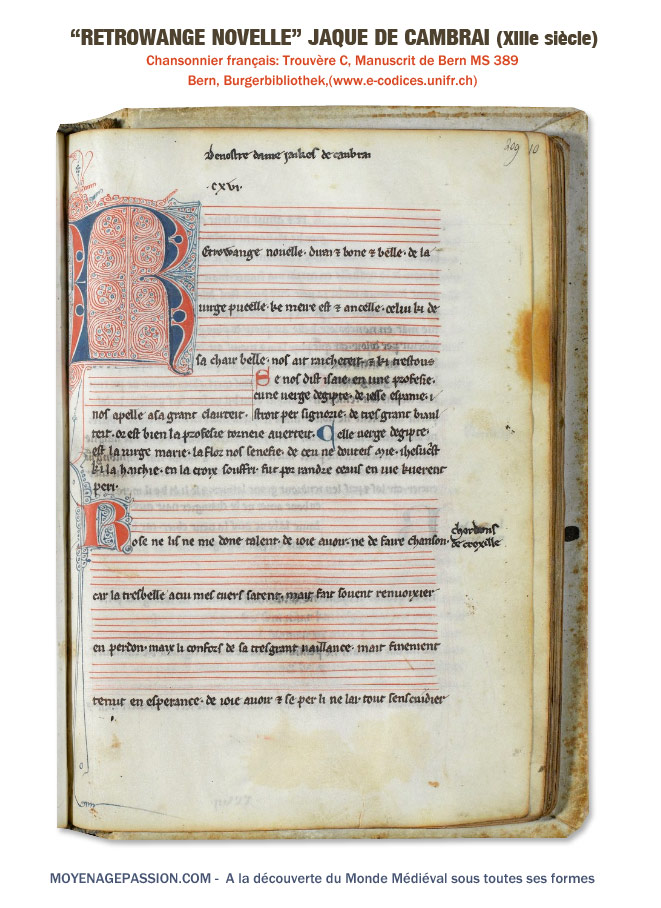 “RETROWANGE NOVELLE” JAQUE DE CAMBRAI (XIIIe siècle)
Chansonnier français: Trouvère C, Manuscrit de Bern MS 389
Bern, Burgerbibliothek,(www.e-codices.unifr.ch)
De nostre dame jaikes de canbrai
209 10
.cxvi.
Retrowange nouelle. dirai ⁊ bone ⁊ belle. de la
uirge pucelle. ke meire est ⁊ ancelle. celui ki de
sa chair belle. nos ait raicheteit. ⁊ ki trestous
Se nos dist isaie. en une profesie.
cune uerge degipte. de iesse espanie. i
nos apelle a sa grant clarteit. stroit per signorie. de tres grant biaul
teit. or est bien la profesie torneie a uerteit. Celle uerge degipte.
est la uirge marie. la flor nos senefie. de ceu ne douteis mie. ihesucrist
ki la haichie. en la croix souffri. fut por randre ceaus en uie ki ierent
peri.
Rose ne lis ne me done talent. de ioie auoir. ne de faire chanson.
chardons
de croxille
car la tresbelle a cui mes cuers satent. mait fait souent renuoixier
en perdon. maix li confors de sa tresgrant uaillance. mait finement
tenut en esperance. de ioie auoir ⁊ se per li ne lai. tout sens cuidier
MOYENAGEPASSION.COM - A la découverte du Monde Médiéval sous toutes ses formes